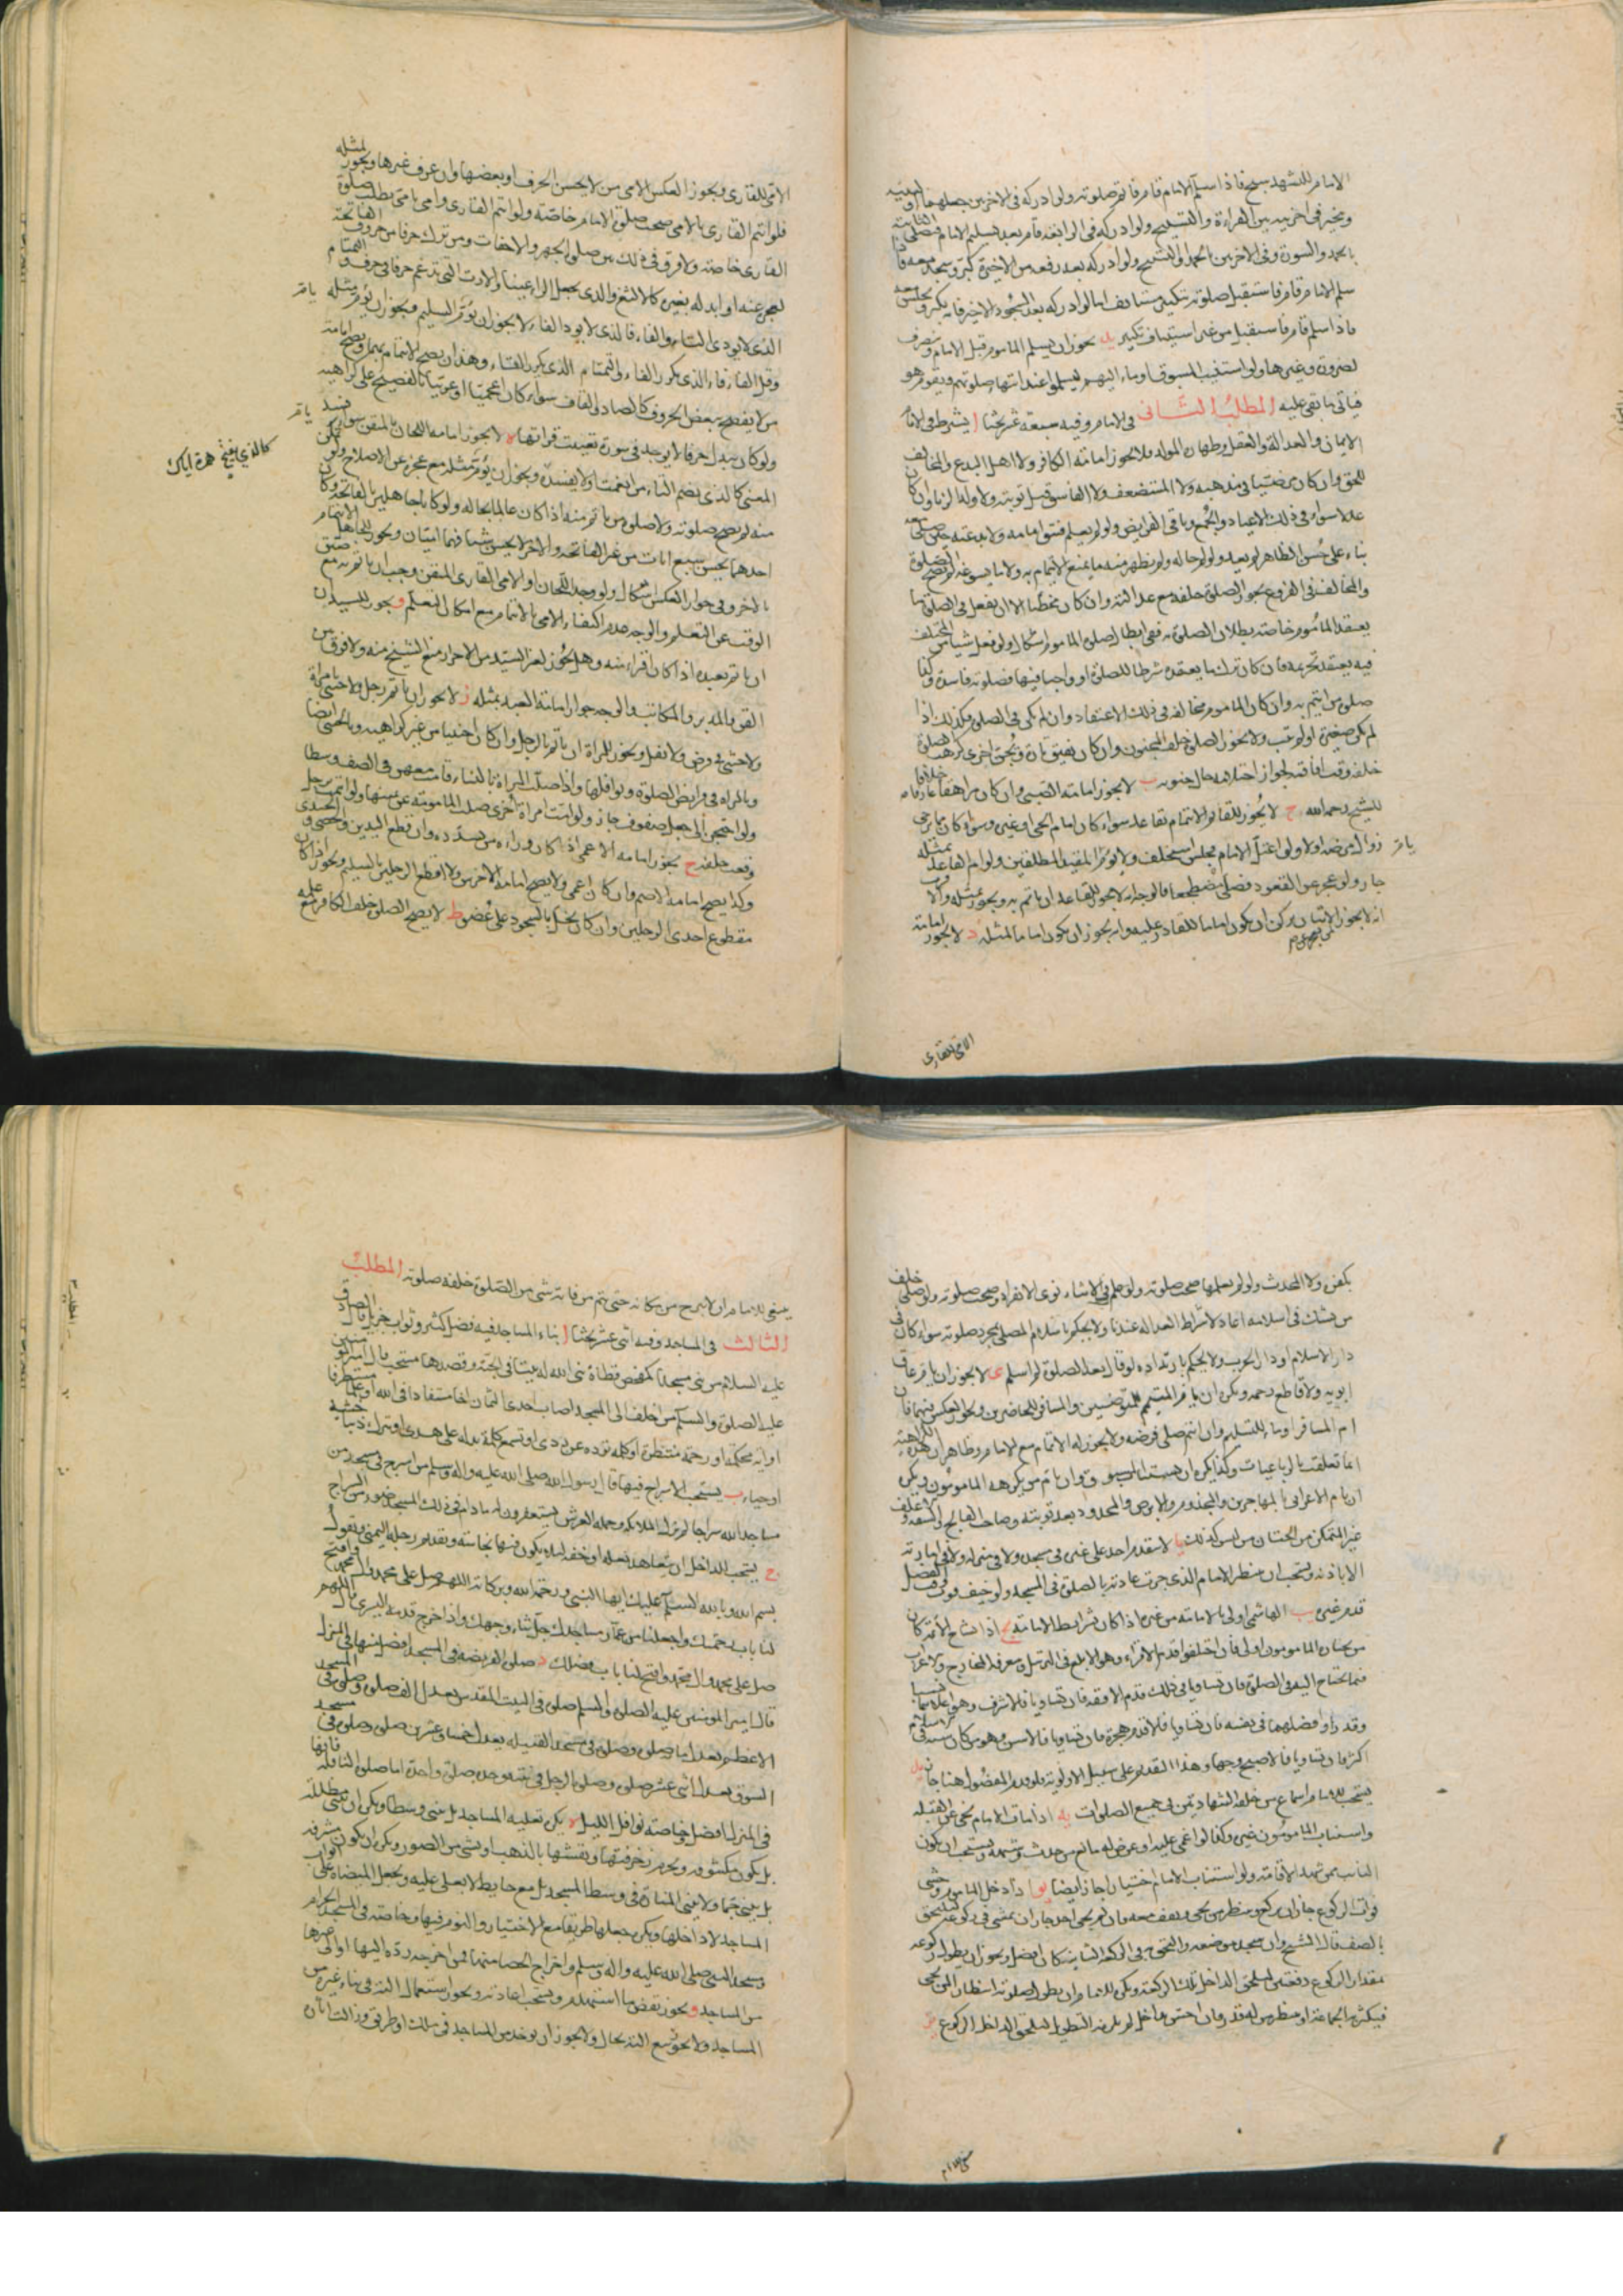 الامام للتشهد سبح فاذا سلم الامام قام فاتم صلوته ولو ادركه في الاخرتين جعلهما اوليته
ويخير في اخرتيه بين القراءة والتسبيح ولو ادركه في الرابعة قام بعد تسليم الامام فصلى الثانية
بالحمد والسورة وفي الاخرتين بالحمد او التسبيح ولو ادركه بعد رفعه من الاخيرة كبر وسجد معه فاذا
سلم الامام قام فاستقبل صلوته بتكبير مستانف اما لو ادركه بعد السجود الاخير فانه يكبر ويجلس معه
فاذا سلم قام فاستقبل من غير استيناف تكبير يه يجوز ان يسلم الماموم قبل الامام وينصرف
لضرورة وغيرها ولو استنيب المسبوق اوماء اليهم ليسلموا عند انتهاء صلوتهم ويقوم هو
فياتي بما بقي عليه المطلب الثاني في الامام وفيه سبعة عشر بحثا ا يشترط في الامام
الايمان والعدالة والعقل وطهارة المولد فلا يجوز امامة الكافر ولا اهل البدع والمخالف
للحق وان كان مرضيا في مذهبه ولا المستضعف ولا الفاسق قبل توبته ولا ولد الزنا وان كان
عدلا سواء في ذلك الاعياد والجمع وباقي الفرايض ولو لم يعلم فسق امامه ولا بدعته حتى صلى معه
بناء على حسن الظاهر لم يعد ولو لم حاله ولم يظهر منه ما يمنع الايتمام به ولا ما يسوغه لم تصح الصلوة
والمخالف في الفروع يجوز الصلوة خلفه مع عدالته وان كان مخطيا الا ان يفعل في الصلوة ما
يعتقد الماموم خاصة بطلان الصلوة به ففي ابطال صلوة الماموم اشكال ولو فعل شيئا من المختلف
فيه يعتقد تحريمه فان كان ترك ما يعتقده شرطا للصلوة او واجبا فيها فصلوته فاسدة وكذا
صلوة من ايتم به وان كان الماموم مخالفه في ذلك الاعتقاد وان لم يكن في الصلوة فكذلك اذا
لم يكن صغيرة او لم يتب ولا يجوز الصلوة خلف المجنون وان كان يفيق تارة ويجن اخرى كرهت الصلوة
خلفه وقت افاقته لجواز احتلامه حال جنونه ب لا يجوز امامة الصبي وان كان مراهقا عارفا خلافا
للشيخ رحمه الله ج لا يجوز للقائم الايتمام بقاعد سواء كان امام الحي او غيره وسواء كان ممن يرجى
زوال مرضه او لا ولو اعتل الامام فجلس استخلف ولا يوم المقيد المطلقين ولو ام القاعد بمثله
جاز ولو عجز عن القعود فصلى مضطجعا فالوجه انه لا يجوز للقاعد ان ياتم به ويجوز بمثله والاقرب
انه لا يجوز لمن يعجز عن الاتيان بركن ان يكون اماما للقادر عليه وانه يجوز ان يكون اماما لمثله د لا يجوز امامة
الامي للقاري
الامي للقاري ويجوز العكس الامي من لا يحسن الحرف او بعضها وان عرف غيرها ويجوز لمثله
فلو ائتم القاري بالامي صحت صلوة الامام خاصة ولو ائتم القاري وامي بامي بطلت صلوة
القاري خاصة ولا فرق في ذلك بين صلوة الجهر والاخفات ومن ترك حرفا من حروف الفاتحة
لعجز عنه او ابدله بغيره كالالثغ والذي يجعل الراء غينا والارت الذي يدغم حرفا في حرف والتمتام
الذي لا يودي التاء والفاء فا الذي لا يود الفاء لا يجوز ان يؤم السليم ويجوز ان يؤم مثله
وقيل الفافاء الذي يكرر الفاء والتمتام الذي يكرر التاء وهذان يصح الايتمام بهما ويصح امامة
من لا يفصح ببعض الحروف كالصاد والقاف سواء كان اعجميا او عربيا بالفصيح على كراهية
ولو كان يبدل حرفا لا يوجد في سورة تعينت قراتها ه لا يجوز امامة اللحان بالمتقن سواء افسد
المعنى كالذي يضم التاء من انعمت او لا يفسد ويجوز ان يؤم مثله مع عجزه عن الاصلاح ولو تمكن
منه لم تصح صلوته ولا صلوة من ياتم منه اذا كان عالما بحاله ولو كانا جاهلين بالفاتحة وكان
احدهما يحسن سبع ايات من غير الفاتحة والاخر لا يحسن شيئا فهما اميان ويجوز للجاهل الايتمام
بالاخر وفي جواز العكس اشكال ولو وجد اللحان او الامي القاري المتقن وجب ان ياتم به مع ضيق
الوقت عن التعلم والوجه عدم اكتفاء الامي بالايتمام مع امكان التعلم و يجوز للسيد ان
ان ياتم بعبده اذا كان اقراء منه وهل يجوز لغير السيد من الاحرار منع الشيخ منه ولا فرق بين
القن والمدبر والمكاتب والوجه جواز امامة العبد بمثله ز لا يجوز ان ياتم رجل ولا خنثى بامراة
ولا خنثى في فرض ولا نفل ويجوز للمراة ان ياتم بالرجل وان كان اجنبيا من غير كراهية وبالخنثى ايضا
وبالمراة في فرايض الصلوة ونوافلها واذا صلت المراة بالنساء قامت معهن في الصف وسطا
ولو احتجن الى جعل صفوف جاز ولو ائمت امراة اخرى صلت المامومة عن يمينها ولو ائتمت برجل
وقفت خلفه ح يجوز امامة الاعمى اذا كان وراءه من يسدده وان قطع اليدين والخصي و الجندي
وكذا يصح امامة الاصم وان كان اعمى ولا يصح امامة الاخرس ولا اقطع الرجلين بالسليم ويجوز اذا كان
مقطوع احدى الرجلين وان كان يخل بالسجود على عضو ط لا يصح الصلوة خلف الكافر مع علمه
كالذي يفتح همزة اياك
بكفره ولا المحدث ولو لم يعلمها صحت صلوته ولو علم في الاثناء نوى الانفراد وصحت صلوته ولو صلى خلف
من يشك في اسلامه اعاد لاشتراط العدالة عندنا ولا يحكم باسلام المصلي بمجرد صلوته سواء كان في
دار الاسلام او دار الحرب ولا يحكم بارتداده لو قال بعد الصلوة لم اسلم ى لا يجوز ان يام عاق
ابويه ولا قاطع رحمه ويكره ان يام المتيمم المتوضئين والمسافر للحاضرين ويجوز العكس فيهما فان
ام المسافر اوماء للتسليم وان ائتم صلى فرضه ولا يجوز له الاتمام مع الامام وظاهر ان هذه الكراهية
انما تعلقت بالرباعيات وكذا يكره ان يستناب المسبوق وان يام من يكرهه المامومون ويكره
ان يام الاعرابي بالمهاجرين والمجذوم والابرص والمحدود بعد توبته وصاحب الفالج والسفيه والاغلف
غير المتمكن من الختان من ليس كذلك يا لا يتقدم احد على غيره في مسجده ولا في منزله ولا في امارته
الا باذنه ويستحب ان ينتظر الامام الذي جرت عادته بالصلوة في المسجد ولو خيف فوت وقت الفضل
قدم غيره يب الهاشمي اولى بالامامة من غيره اذا كان بشرايط الامامة يج اذا تشاح الائمة كان
من يختاره المامومون اولى فان اختلفوا قدم الاقراء وهو الابلغ في الترتيل ومعرفة المخارج والاعراب
فيما يحتاج اليه في الصلوة فان تساويا في ذلك قدم الافقه فان تساويا فالاشرف وهو اعلاهما نسبا
وقدرا وافضلهما في نفسه فان تساويا فالاقدم هجرة فان تساويا فالاسن وهو من كان سنه في الاسلام
اكثر فان تساويا فالاصبح وجها وهذا التقديم على سبيل الاولوية فلو قدم المفضول هنا جاز يد
يستحب للامام اسماع من خلفه الشهادتين في جميع الصلوات يه اذا مات الامام نحى عن القبلة
واستناب المامومون غيره وكذا لو اغمي عليه او عرض له مانع من حدث وتتمة ويستحب ان يكون
النائب ممن شهد الاقامة ولو استناب الامام اختيارا جاز ايضا يو اذا دخل الماموم وخشي
فوات الركوع جاز ان يركع وينتظر من يجيء ويقف معه فان لم يجئ احد جاز ان يمشي في ركوعه ليلتحق
بالصف قال الشيخ وان سجد موضعه والتحق في الركعة الثانية كان افضل ويجوز ان يطول ركوعه
بمقدار الركوع دفعتين ليلحق الداخل تلك الركعة ويكره للامام ان يطول صلوته انتظارا لمن يجيء
فيكثر به الجماعة او ينتظر من له قدر وان احس بداخل لم يلزمه التطويل ليلحق الداخل الركوع يز
ينبغي للامام ان لا يبرح من مكانه حتى يتم من فاته شيء من الصلوة خلفه صلوته المطلب
الثالث في المساجد وفيه اثنى عشر بحثا ا بناء المساجد فيه فضل كثير وثواب جزيل قال الصادق
عليه السلام من بنى مسجدا كمفحص قطاة بنى الله له بيتا في الجنة وقصدها مستحب قال امير المومنين
عليه الصلوة والسلام من اختلف الى المسجد اصاب احدى الثمان اخا مستفادا في الله او علما مستطرفا
او اية محكمة او رحمة منتظرة او كلمة ترده عن ردى او تسمع كلمة تدله على هدى او تترك ذنبا خشية
او حياء ب يستحب الاسراج فيها قال رسول الله صلى الله عليه واله وسلم من اسرج في مسجد من
مساجد الله سراجا لم تزل الملائكة وحملة العرش يستغفرون له ما دام في ذلك المسجد ضوء من السراج
ج يستحب للداخل ان يتعاهد نعله او خفه لئلا يكون فيها نجاسة ويقدم رجله اليمنى ويقول
بسم الله وبالله السلام عليك ايها النبي ورحمة الله وبركاته اللهم صل على محمد وال محمد وافتح
لنا باب رحمتك واجعلنا من عمار مساجدك جل ثناء وجهك واذا خرج قدم اليسرى وقال اللهم
صل على محمد وال محمد وافتح لنا باب فضلك د صلوة الفريضة في المسجد افضل منها في المنزل
قال امير المومنين عليه الصلوة والسلام صلوة في البيت المقدس تعدل الف صلوة وصلوة في المسجد
الاعظم تعدل ماية صلوة وصلوة في مسجد القبيلة تعدل خمسا وعشرين صلوة وصلوة في مسجد
السوق تعدل اثنى عشر صلوة وصلوة الرجل في بيته وحده صلوة واحدة اما صلوة النافلة فانها
في المنزل افضل خاصة نوافل الليل ه يكره تعلية المساجد بل تبنى وسطا ويكره ان تبنى مظللة
بل يكون مكشوفة ويحرم زخرفتها ونقشها بالذهب او بشيء من الصور ويكره ان يكون مشرفة
بل تبنى جما ولا يبنى المنارة في وسط المسجد بل مع حايطه لا يعلى عليه ويجعل الميضاة على ابواب
المساجد لا داخلها ويكره جعلها طريقا مع الاختيار والنوم فيها وخاصة في المسجد الحرام
ومسجد النبي صلى الله عليه واله وسلم واخراج الحصا منها فمن اخرجه رده اليها او الى غيرها
من المساجد و يجوز نقض ما استهدم ويستحب اعادته ويجوز استعمال الته في بناء غيره من
المساجد ولا يجوز بيع الته بحال ولا يجوز ان يوخذ من المساجد في ملك او طريق وزالت اثار